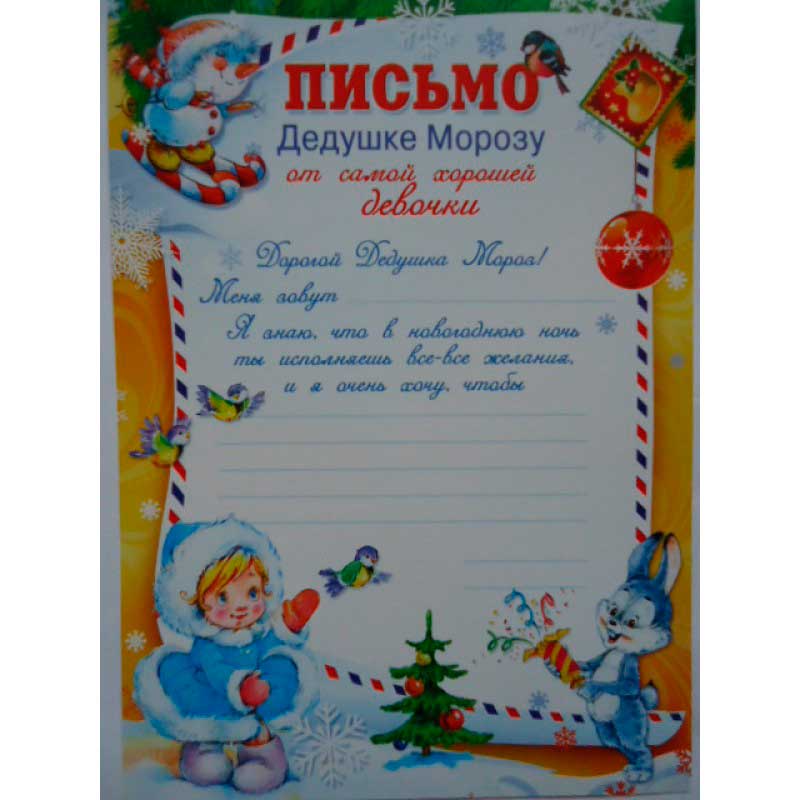 ПИСЬМО
Дедушке Морозу
от самой хорошей
девочки
Дорогой Дедушка Мороз!
Меня зовут
Я знаю, что в новогоднюю ночь
ты исполняешь все-все желания,
и я очень хочу, чтобы